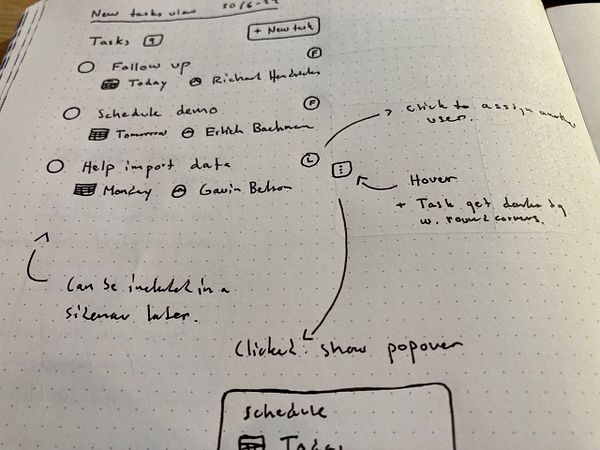 New tasks view 30/6-22
Tasks 9 + New task
Follow up F
Today Richard Hendricks
Schedule demo F
Tomorrow Erlich Bachman
Help import data L
Monday Gavin Belson
Click to assign another
user.
Hover
+ Task get darker bg
w. round corners.
Can be included in a
sidenav later.
Clicked: show popover
Schedule
Today